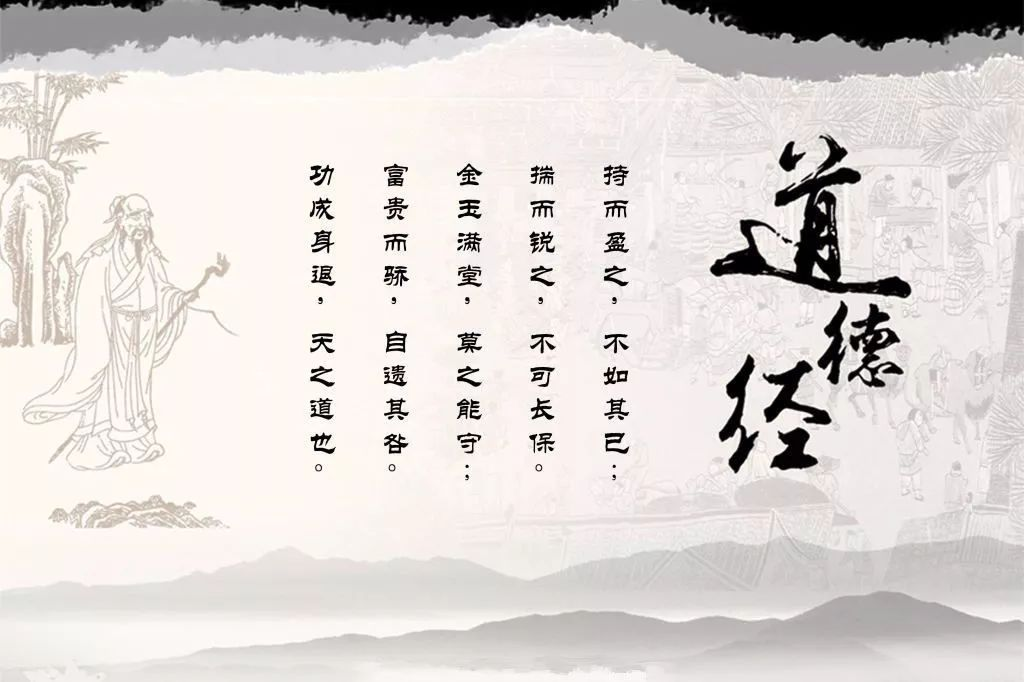 道德经
持而盈之，不如其已；
揣而锐之，不可长保。
金玉满堂，莫之能守；
富贵而骄，自遗其咎。
功成身退，天之道也。